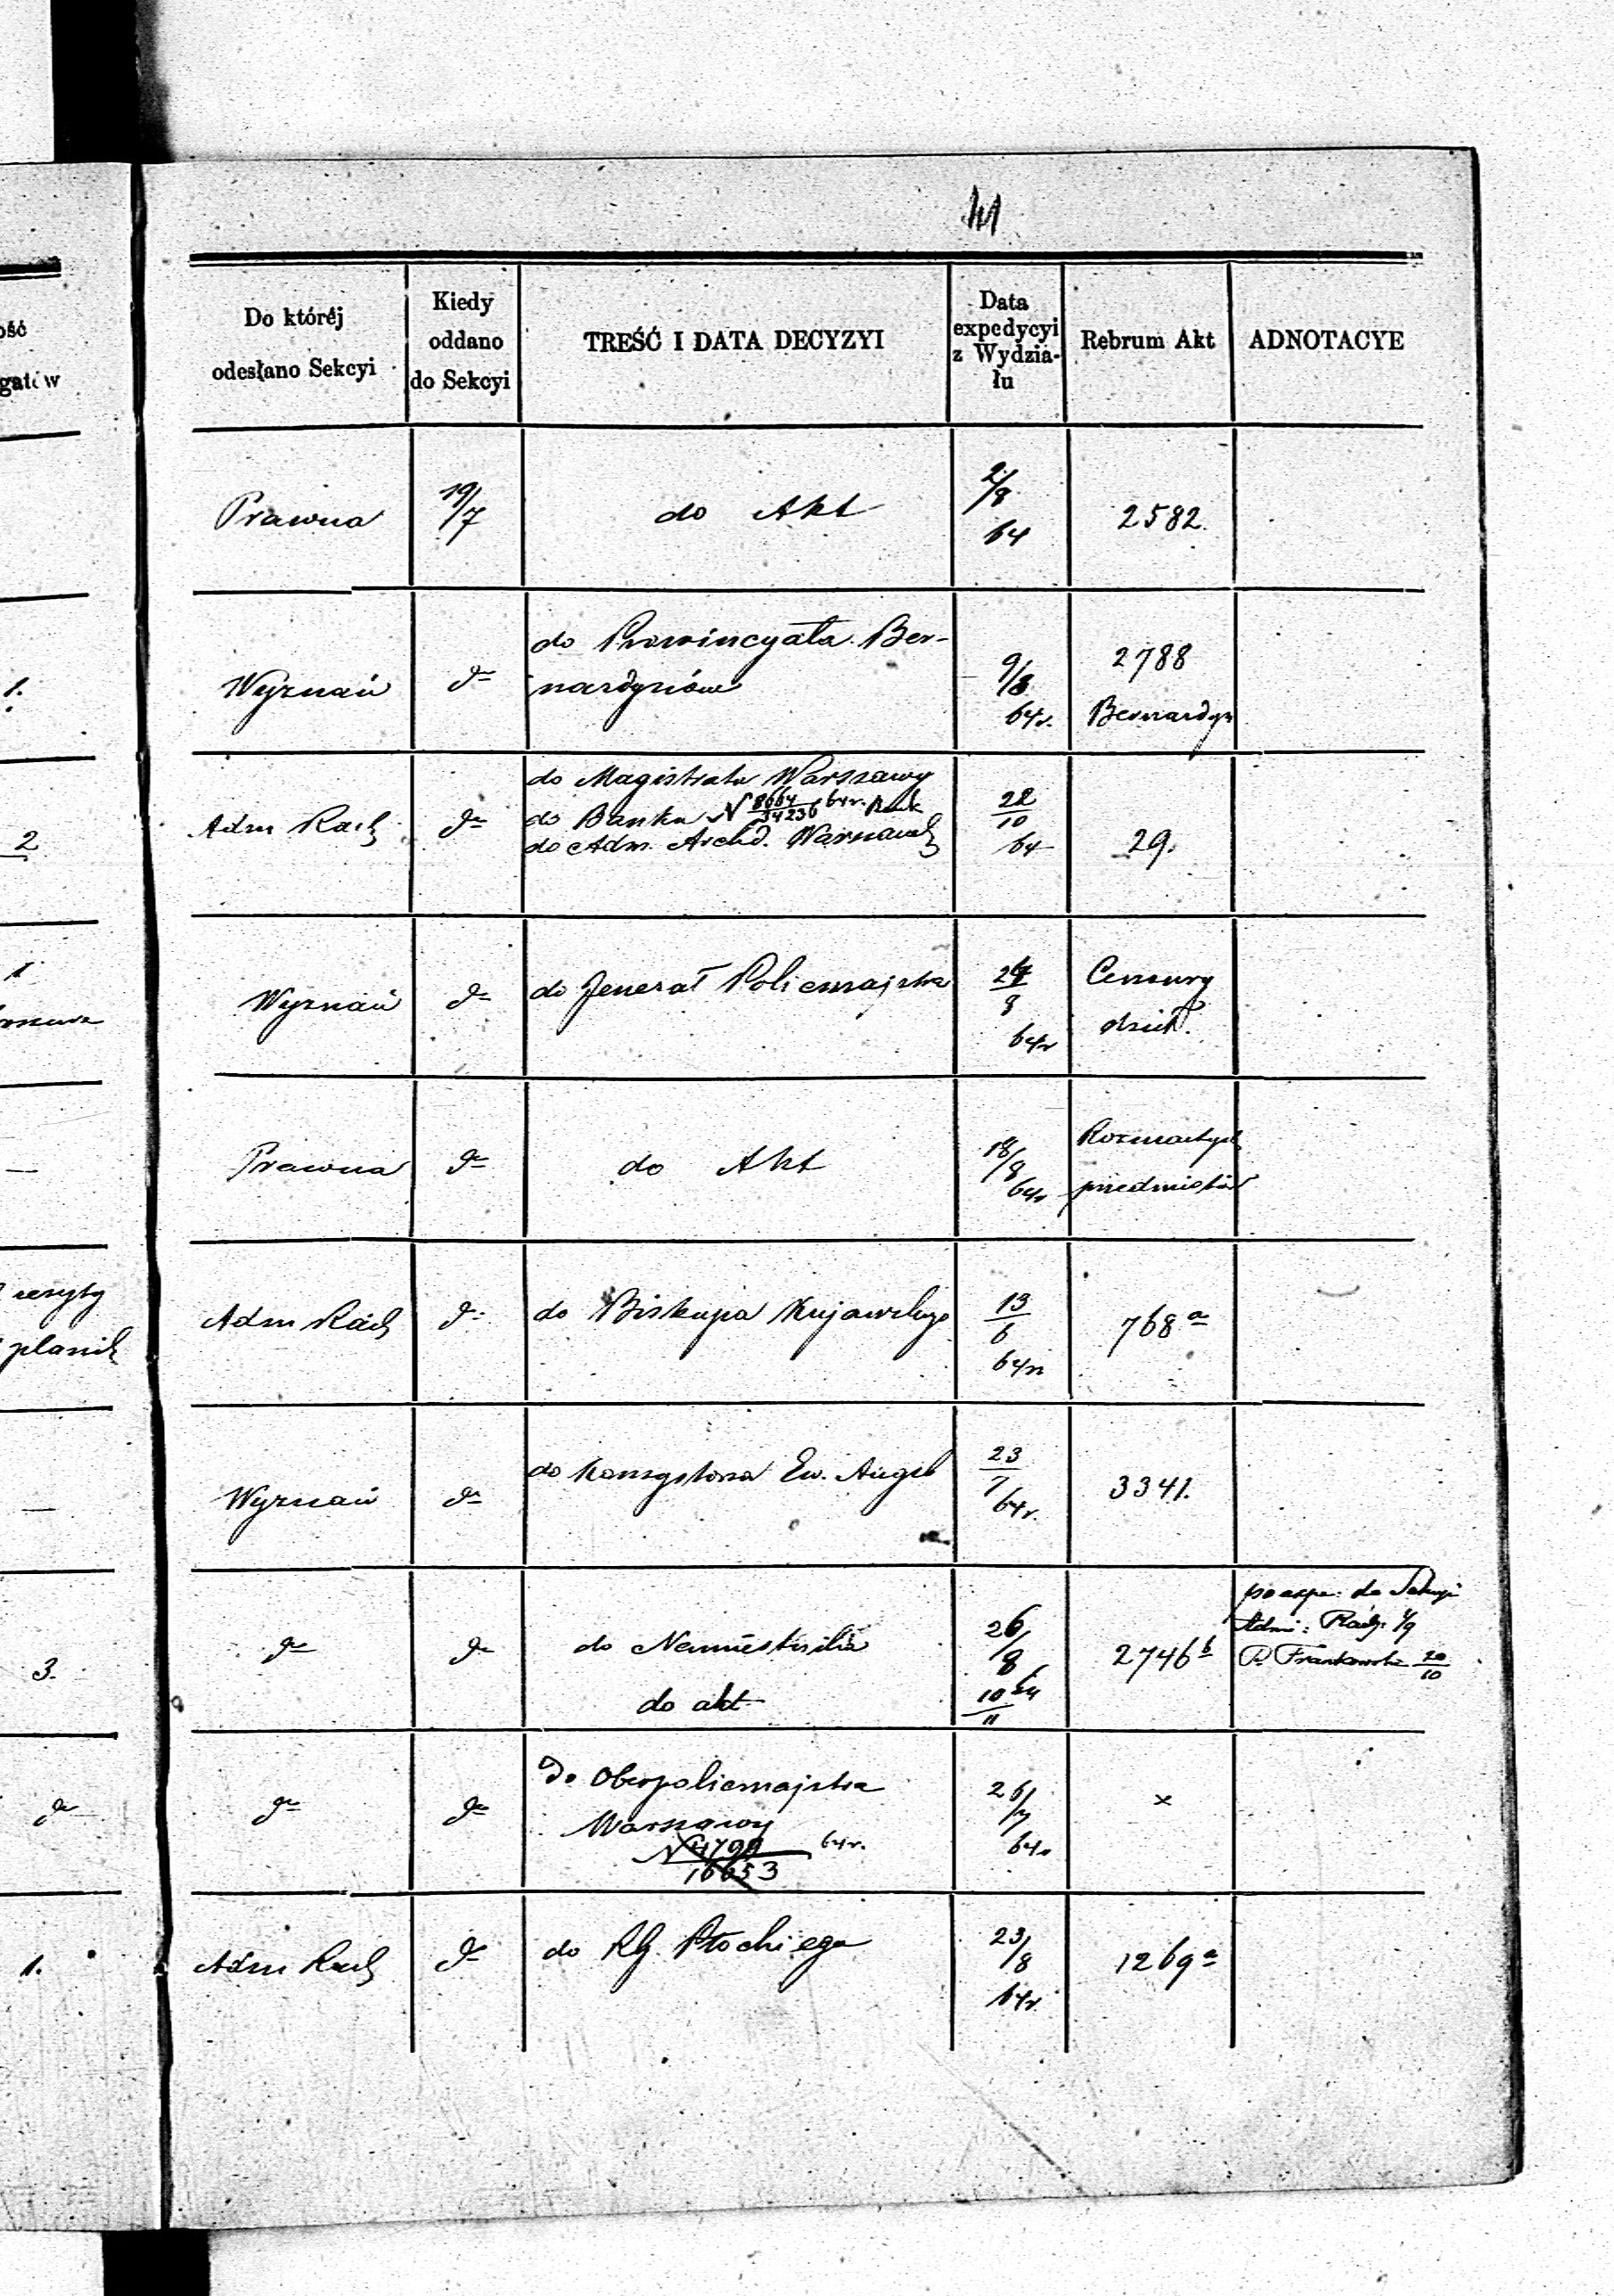 41
ość
gatów
Do któréj
odesłano Sekcyi
Kiedy
oddano
do Sekcyi
TREŚĆ I DATA DECYZYI
Data
expedycyi
z Wydzia-
łu
Rebrum Akt
ADNOTACYE
Prawna
19/7
do Akt
2/8
64
2582.
1.
Wyznań
do
do Prowincyała Ber-
nardynów
9/8
64r.
2788
Bernardyn
2
Adm Rach
do
do Magistratu Warszawy
do Banku N 8664/34236 64r.
do Adm. Archd. Warszawsk
22/10
64
29.
1
Wyznań
do
do Jenerał Policmajstra
8
64r
Cenzury
do
Prawna
do
do Akt
18/8
64r
Rozmaitych
przedmiotów
zeszyty
planik
Adm Rach
do
do Biskupa Kujawskiego
13/6
64r
768 a
Wyznań
do
do Konsystorza Ew. Augsb
23/7
64r.
3341.
3.
do
do
do Namiestnika
do akt
26/8
64
10/11
2746 b
po expe. do Sekcyi
Admi: Rach:
P. Frankowski 20/10
do
do
do
Do Oberpolicmajstra
Warszawy
N 4799/16653 64r.
26/7
64r
×
1.
Adm Rach
do
do RG. Płockiego
23/8
64r
1269 a